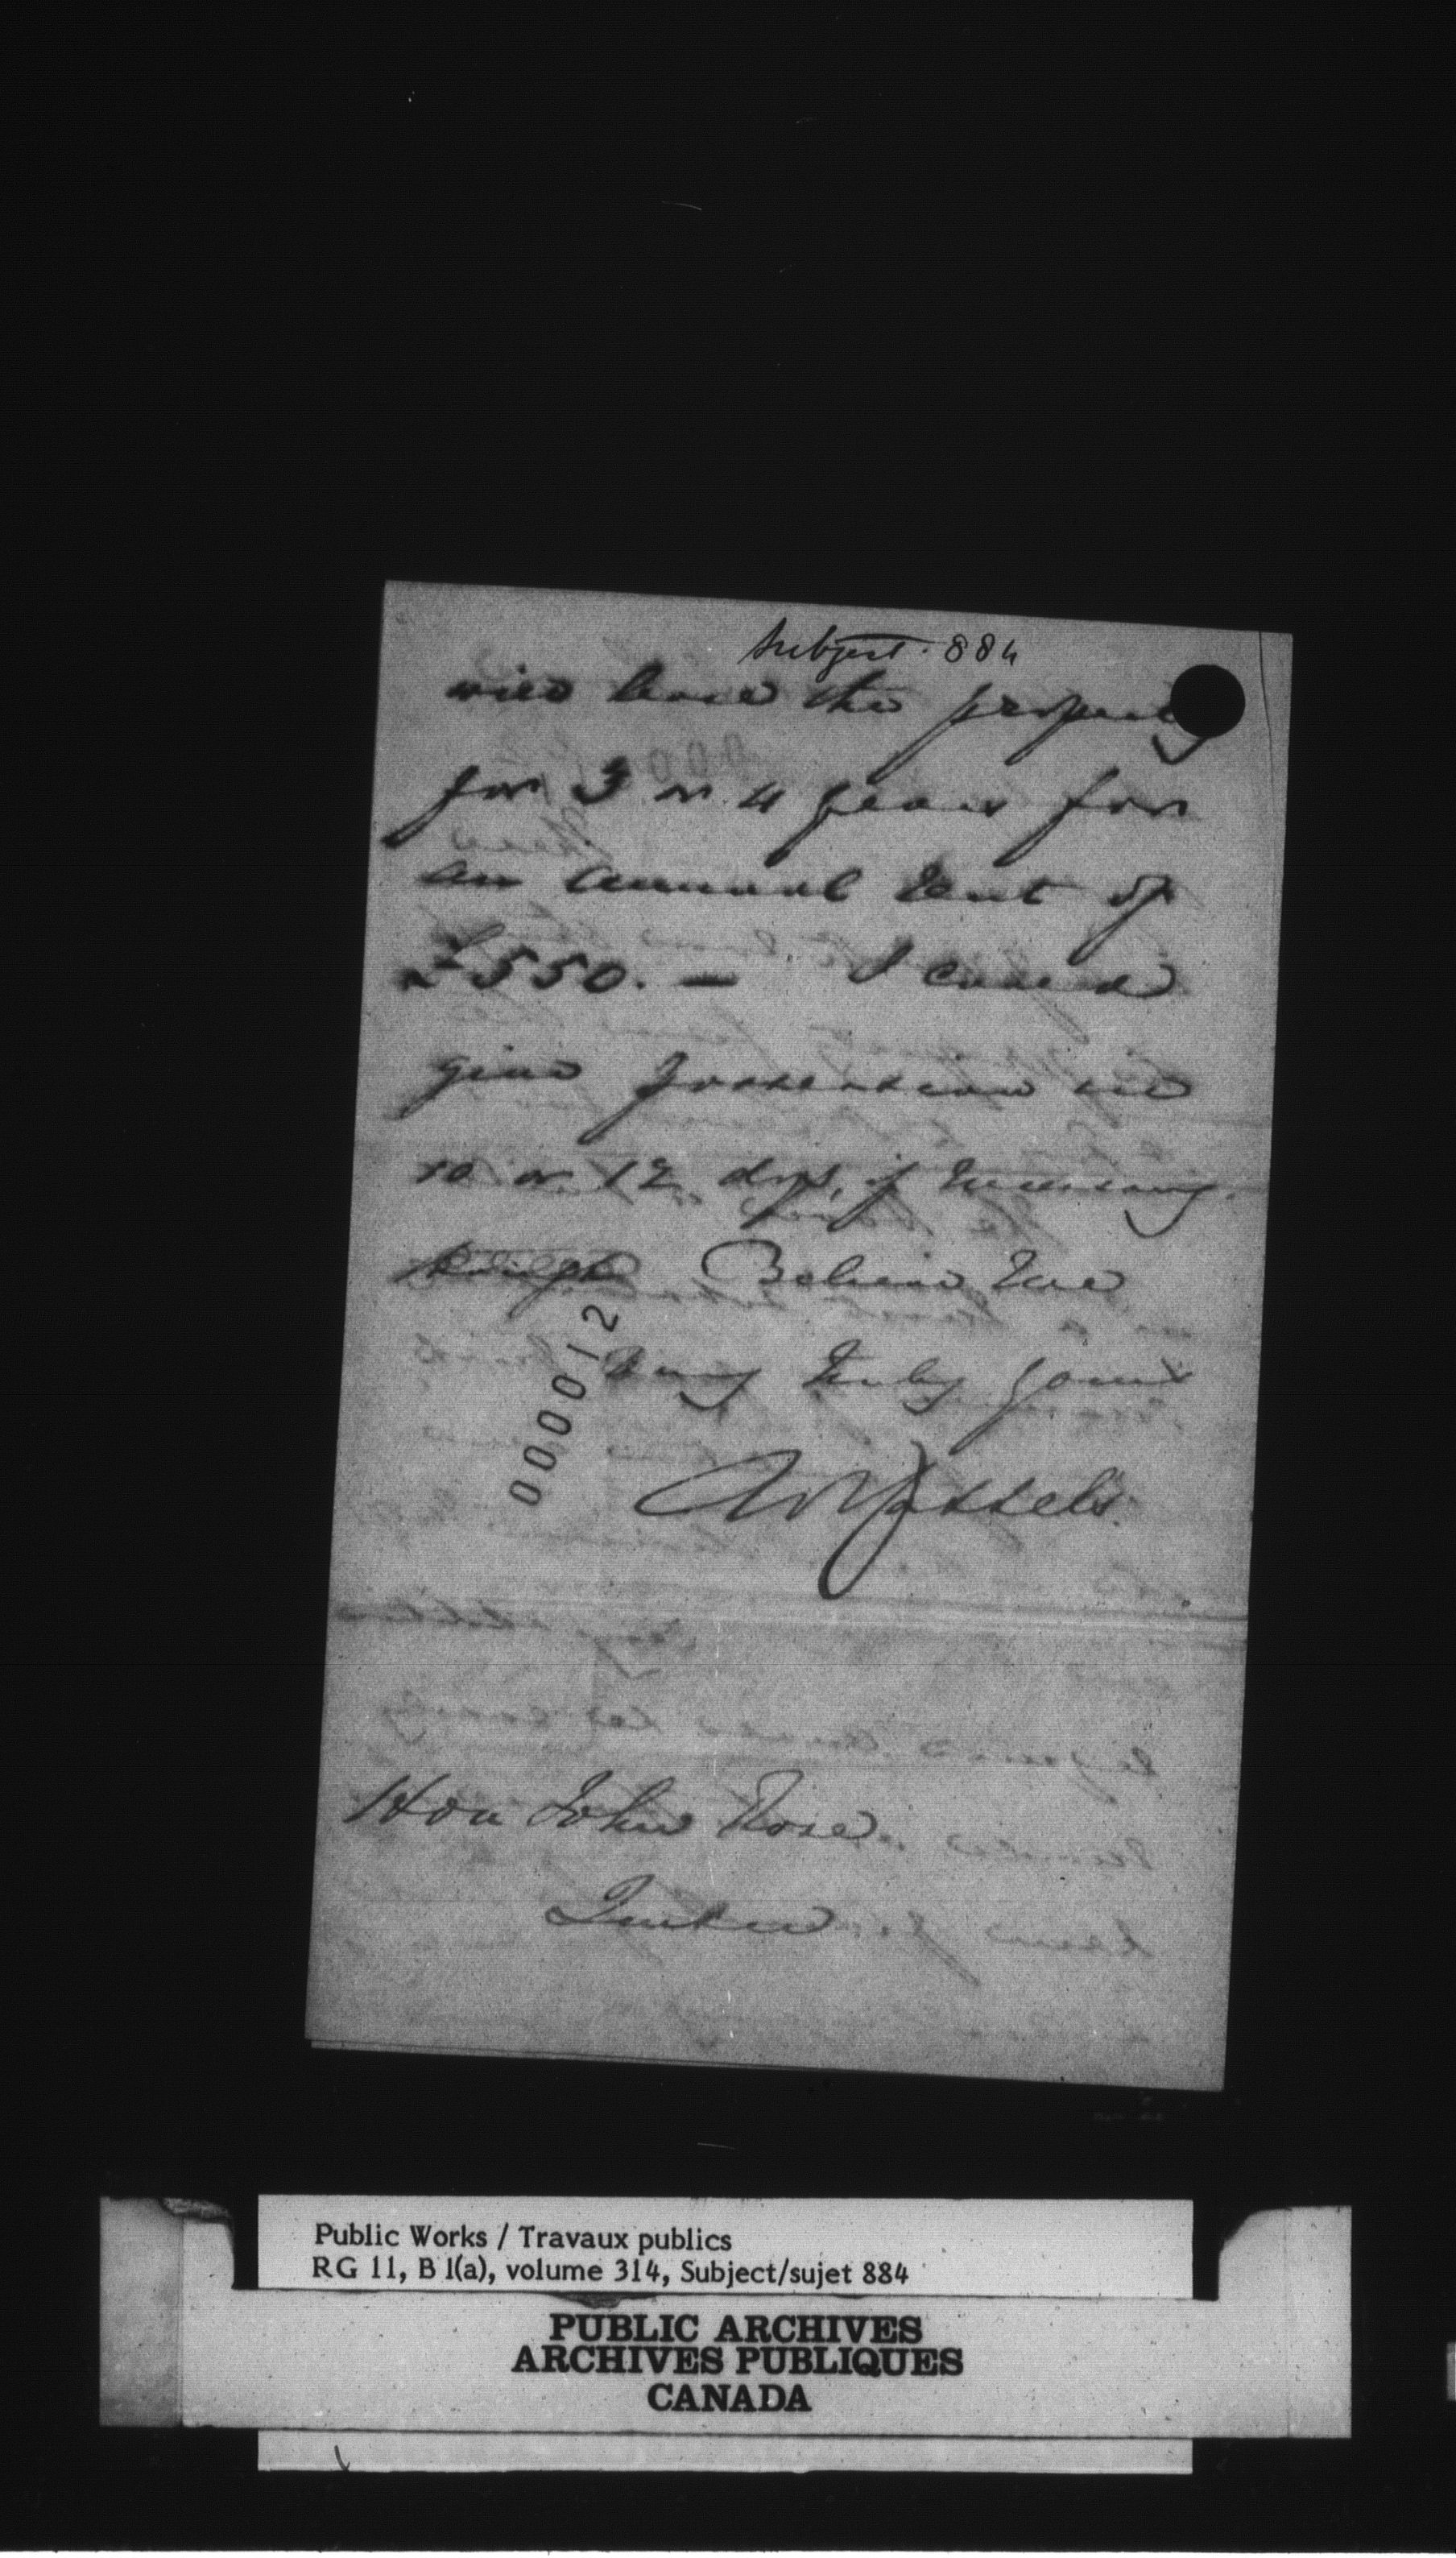 Subject. 884
will lease the property
for 3 or 4 years for
an annual rent of
£550. — I could
give possession in
10 or 12 dys, if necessary.
Believe me
Very truly yours
Hon John Rose
Quebec
000012
Public Works / Travaux publics
RG 11, B 1(a), volume 314, Subject/sujet 884
PUBLIC ARCHIVES
ARCHIVES PUBLIQUES
CANADA